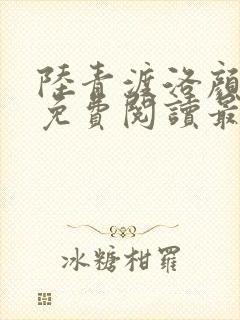 陸青渡洛顏
免費閱讀最
冰糖柑羅